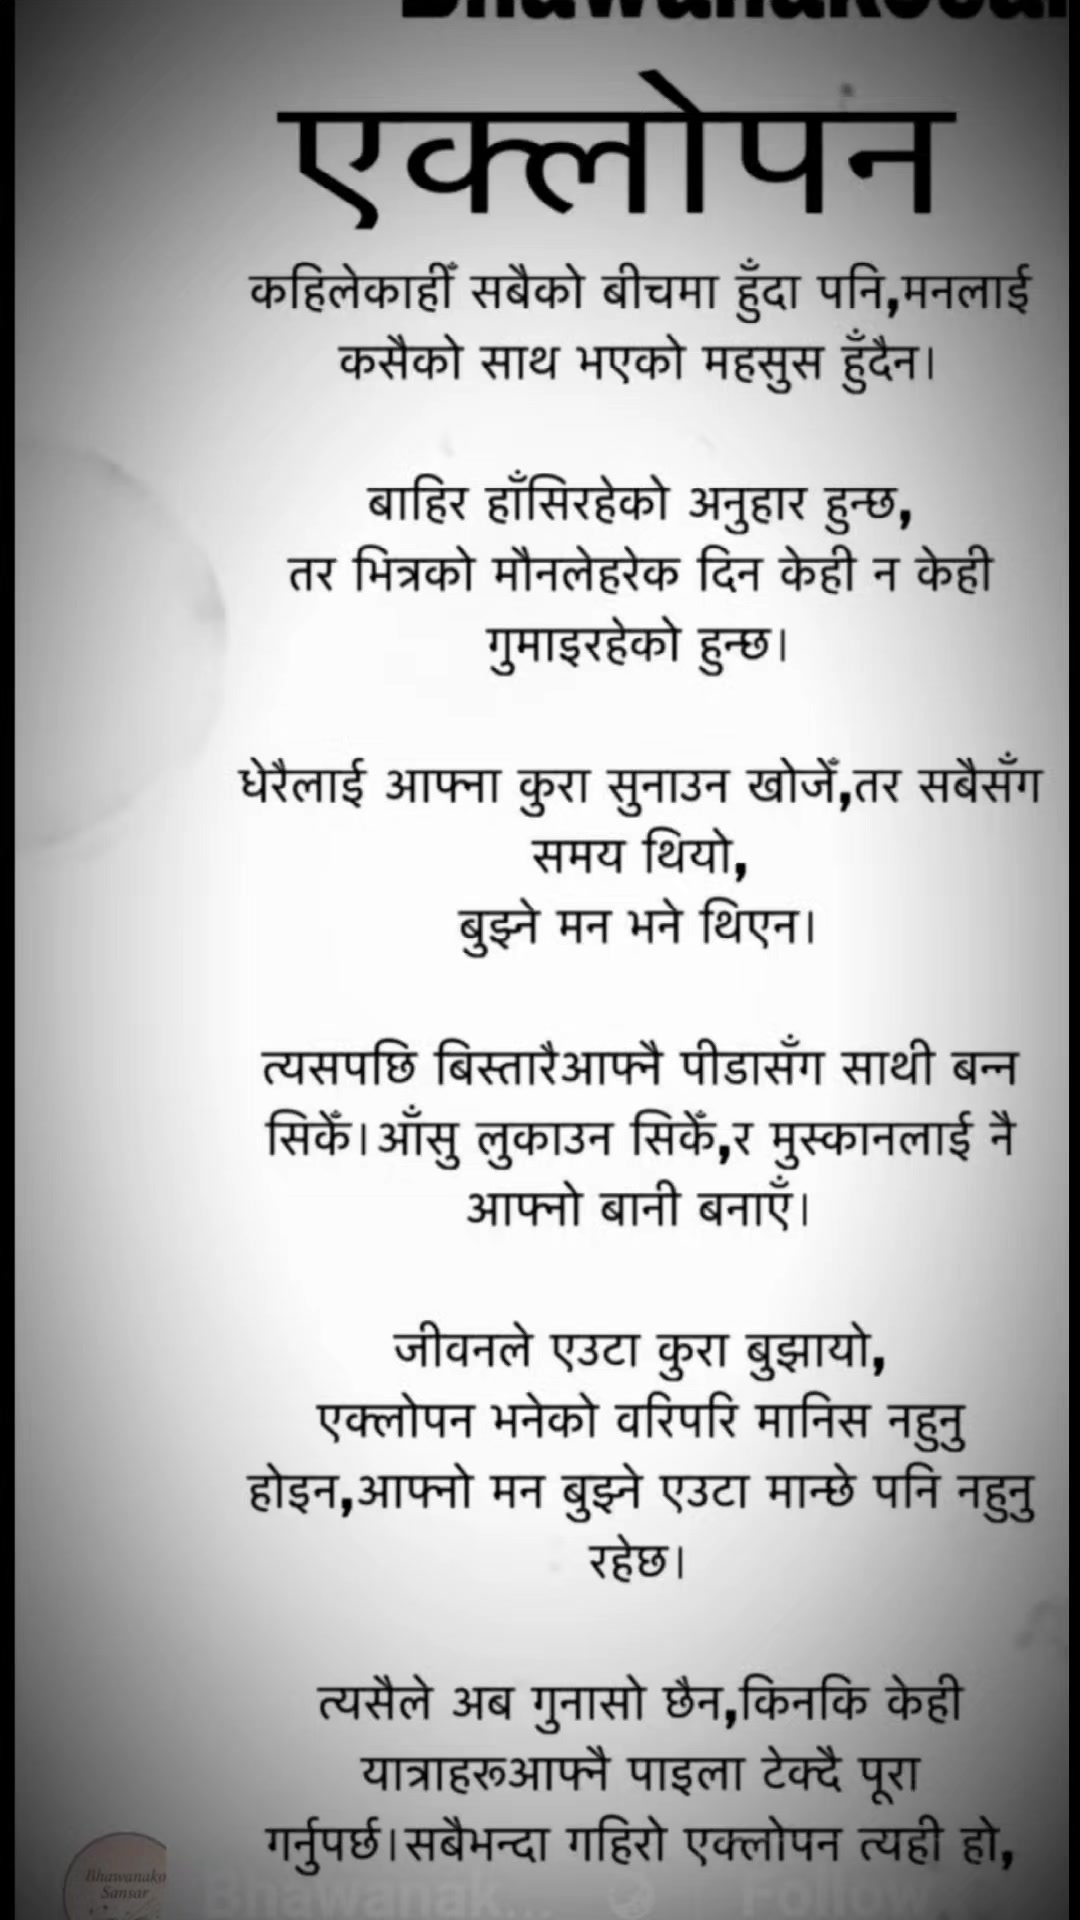 एक्लोपन
कहिलेकाहीँ सबैको बीचमा हुँदा पनि,मनलाई
कसैको साथ भएको महसुस हुँदैन।
बाहिर हाँसिरहेको अनुहार हुन्छ,
तर भित्रको मौनलेहरेक दिन केही न केही
गुमाइरहेको हुन्छ।
धेरैलाई आफ्ना कुरा सुनाउन खोजेँ,तर सबैसँग
समय थियो,
बुझ्ने मन भने थिएन।
त्यसपछि बिस्तारैआफ्नै पीडासँग साथी बन्न
सिकेँ।आँसु लुकाउन सिकेँ,र मुस्कानलाई नै
आफ्नो बानी बनाएँ।
जीवनले एउटा कुरा बुझायो,
एक्लोपन भनेको वरिपरि मानिस नहुनु
होइन,आफ्नो मन बुझ्ने एउटा मान्छे पनि नहुनु
रहेछ।
त्यसैले अब गुनासो छैन,किनकि केही
यात्राहरूआफ्नै पाइला टेक्दै पूरा
गर्नुपर्छ।सबैभन्दा गहिरो एक्लोपन त्यही हो,
Bhawanako
Sansar
Bhawanak...
Follow